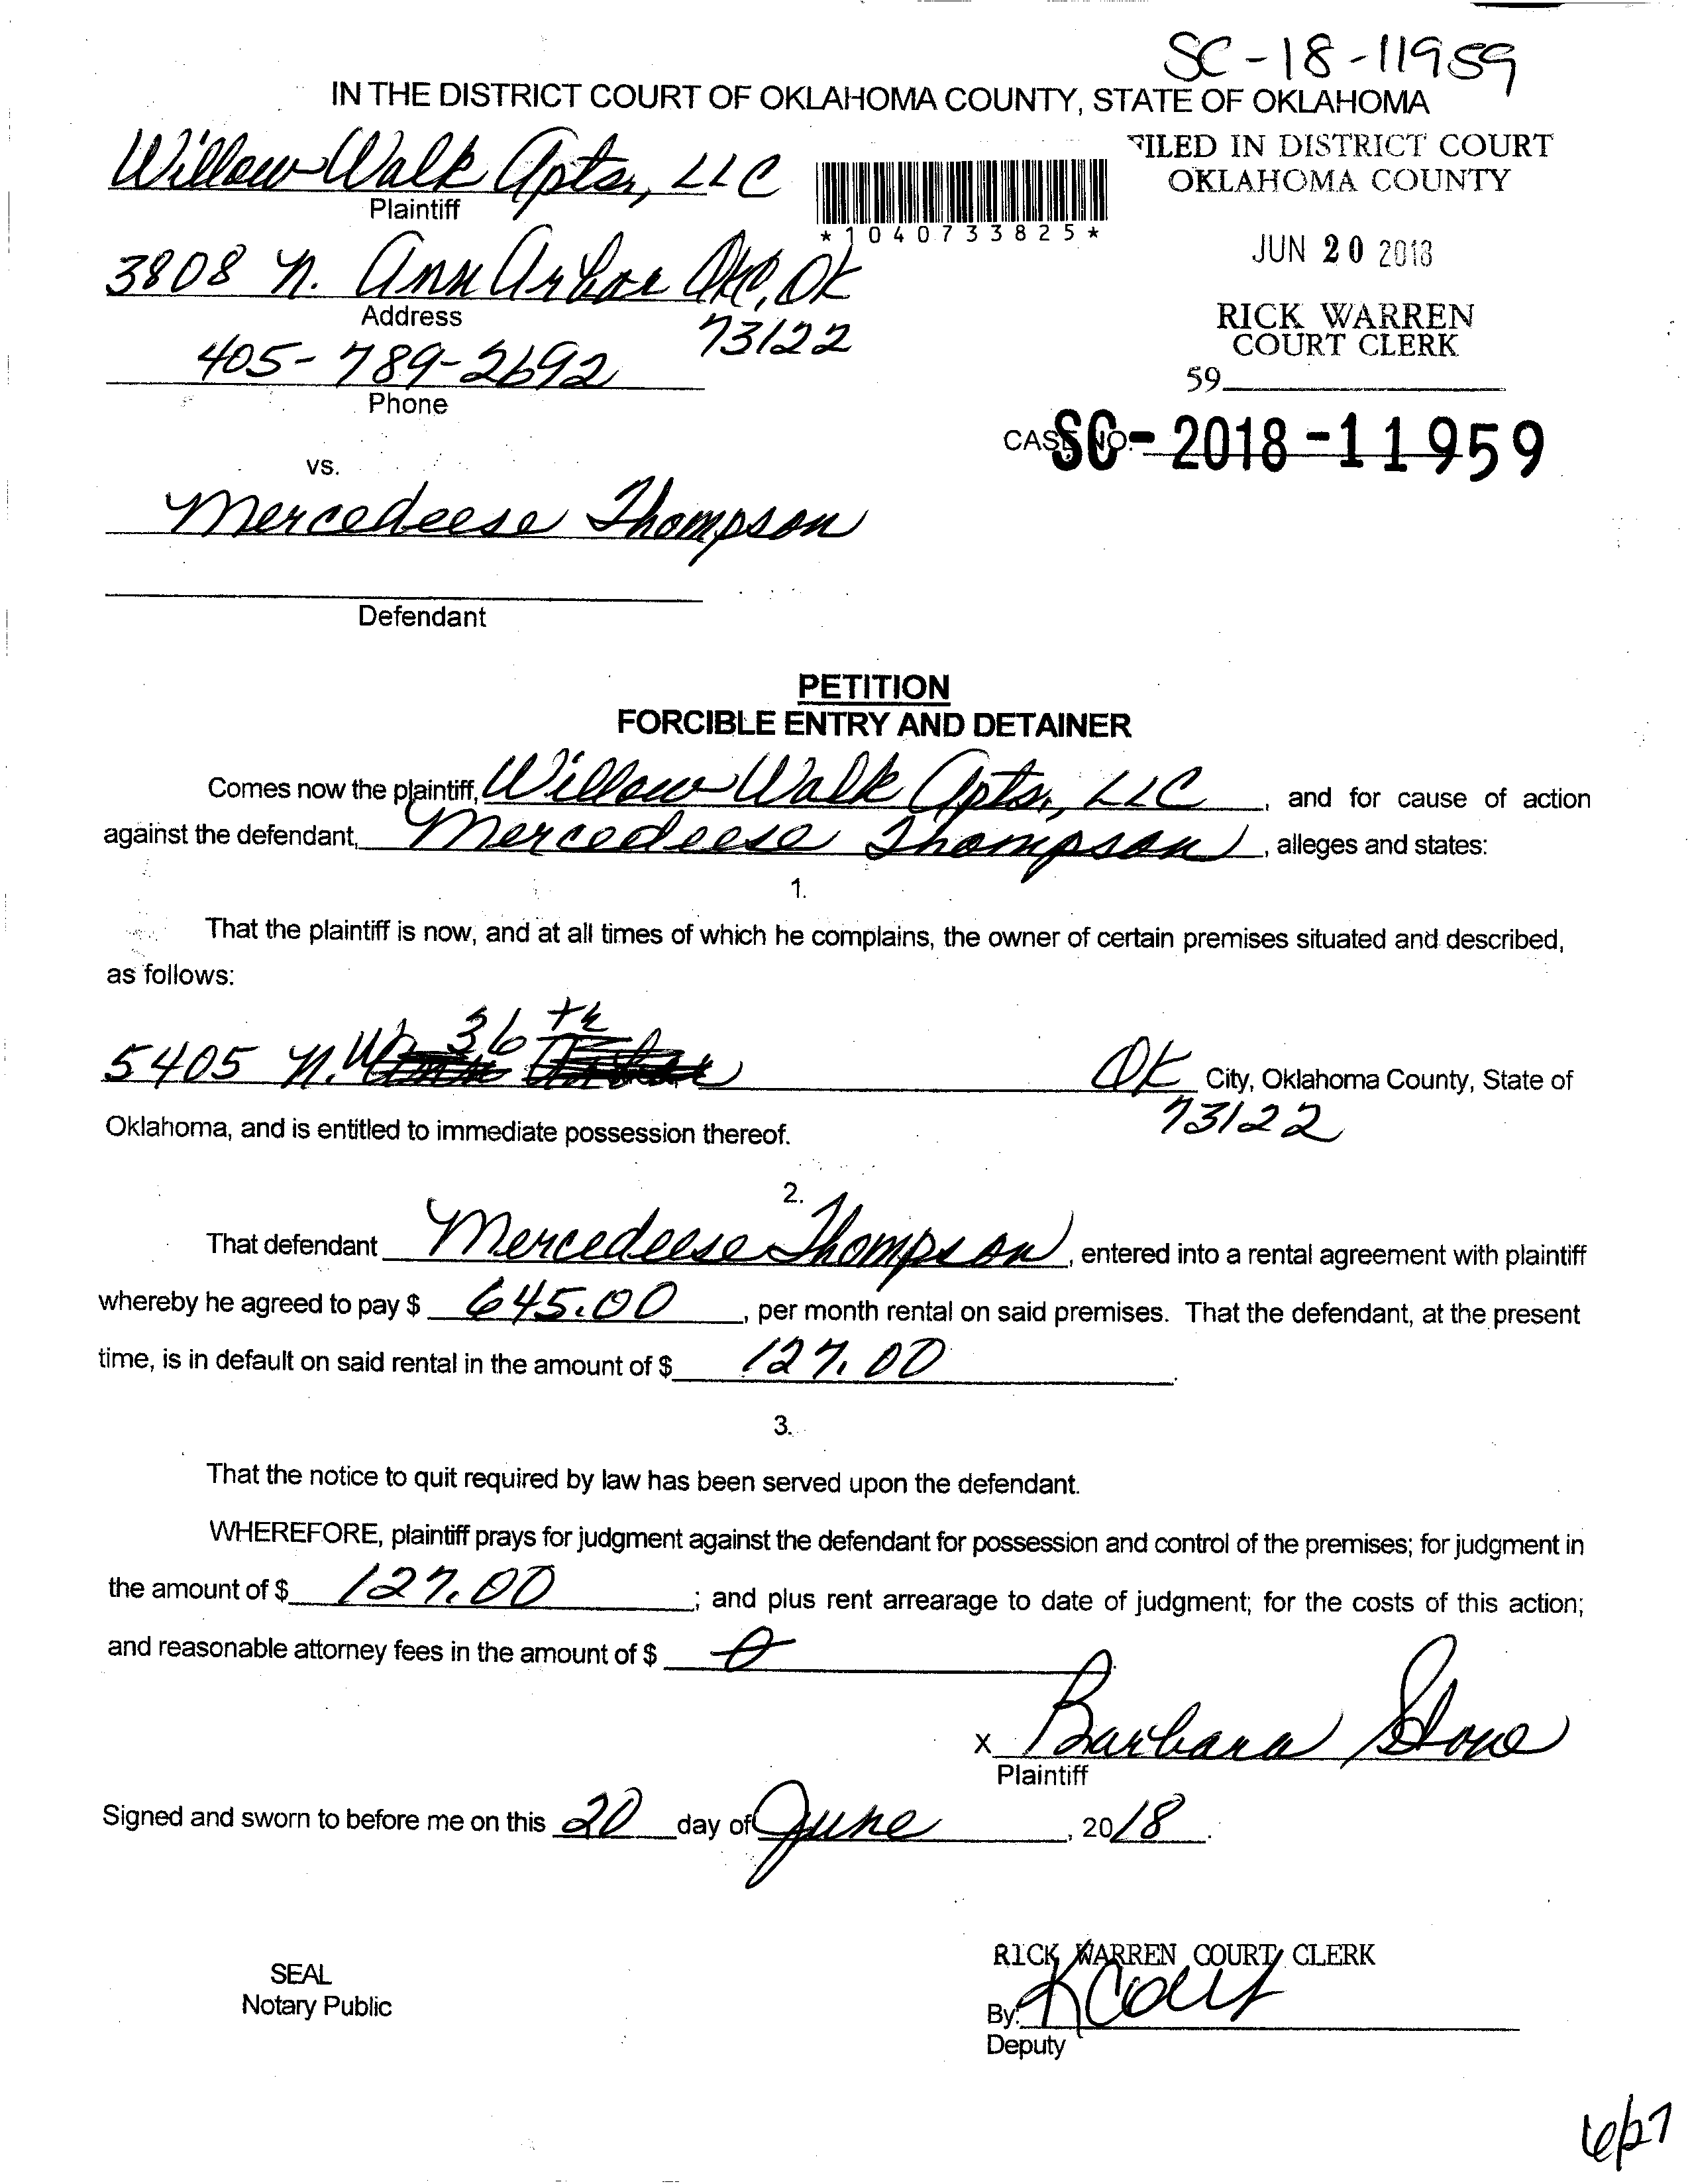 SC-18-11959
IN THE DISTRICT COURT OF OKLAHOMA COUNTY, STATE OF OKLAHOMA
Willow Walk Apts, LLC
Plaintiff
FILED IN DISTRICT COURT
OKLAHOMA COUNTY
*1040733825*
3808 N. Ann Arbor OKC, OK
Address
73122
JUN 20 2018
RICK WARREN
COURT CLERK
405-789-2692
Phone
59
CASE NO. SC-2018-11959
vs.
Mercedeese Thompson
Defendant
PETITION
FORCIBLE ENTRY AND DETAINER
Comes now the plaintiff, Willow Walk Apts, LLC, and for cause of action
against the defendant, Mercedeese Thompson, alleges and states:
1.
That the plaintiff is now, and at all times of which he complains, the owner of certain premises situated and described,
as follows:
5405 N.W 36th OK City, Oklahoma County, State of
73122
Oklahoma, and is entitled to immediate possession thereof.
2.
That defendant Mercedeese Thompson, entered into a rental agreement with plaintiff
whereby he agreed to pay $ 645.00, per month rental on said premises. That the defendant, at the present
time, is in default on said rental in the amount of $ 127.00.
3.
That the notice to quit required by law has been served upon the defendant.
WHEREFORE, plaintiff prays for judgment against the defendant for possession and control of the premises; for judgment in
the amount of $ 127.00; and plus rent arrearage to date of judgment; for the costs of this action;
and reasonable attorney fees in the amount of $ 0.
x Barbara Stone
Plaintiff
Signed and sworn to before me on this 20 day of June, 2018.
SEAL
Notary Public
RICK WARREN COURT CLERK
By:
Deputy
6/27